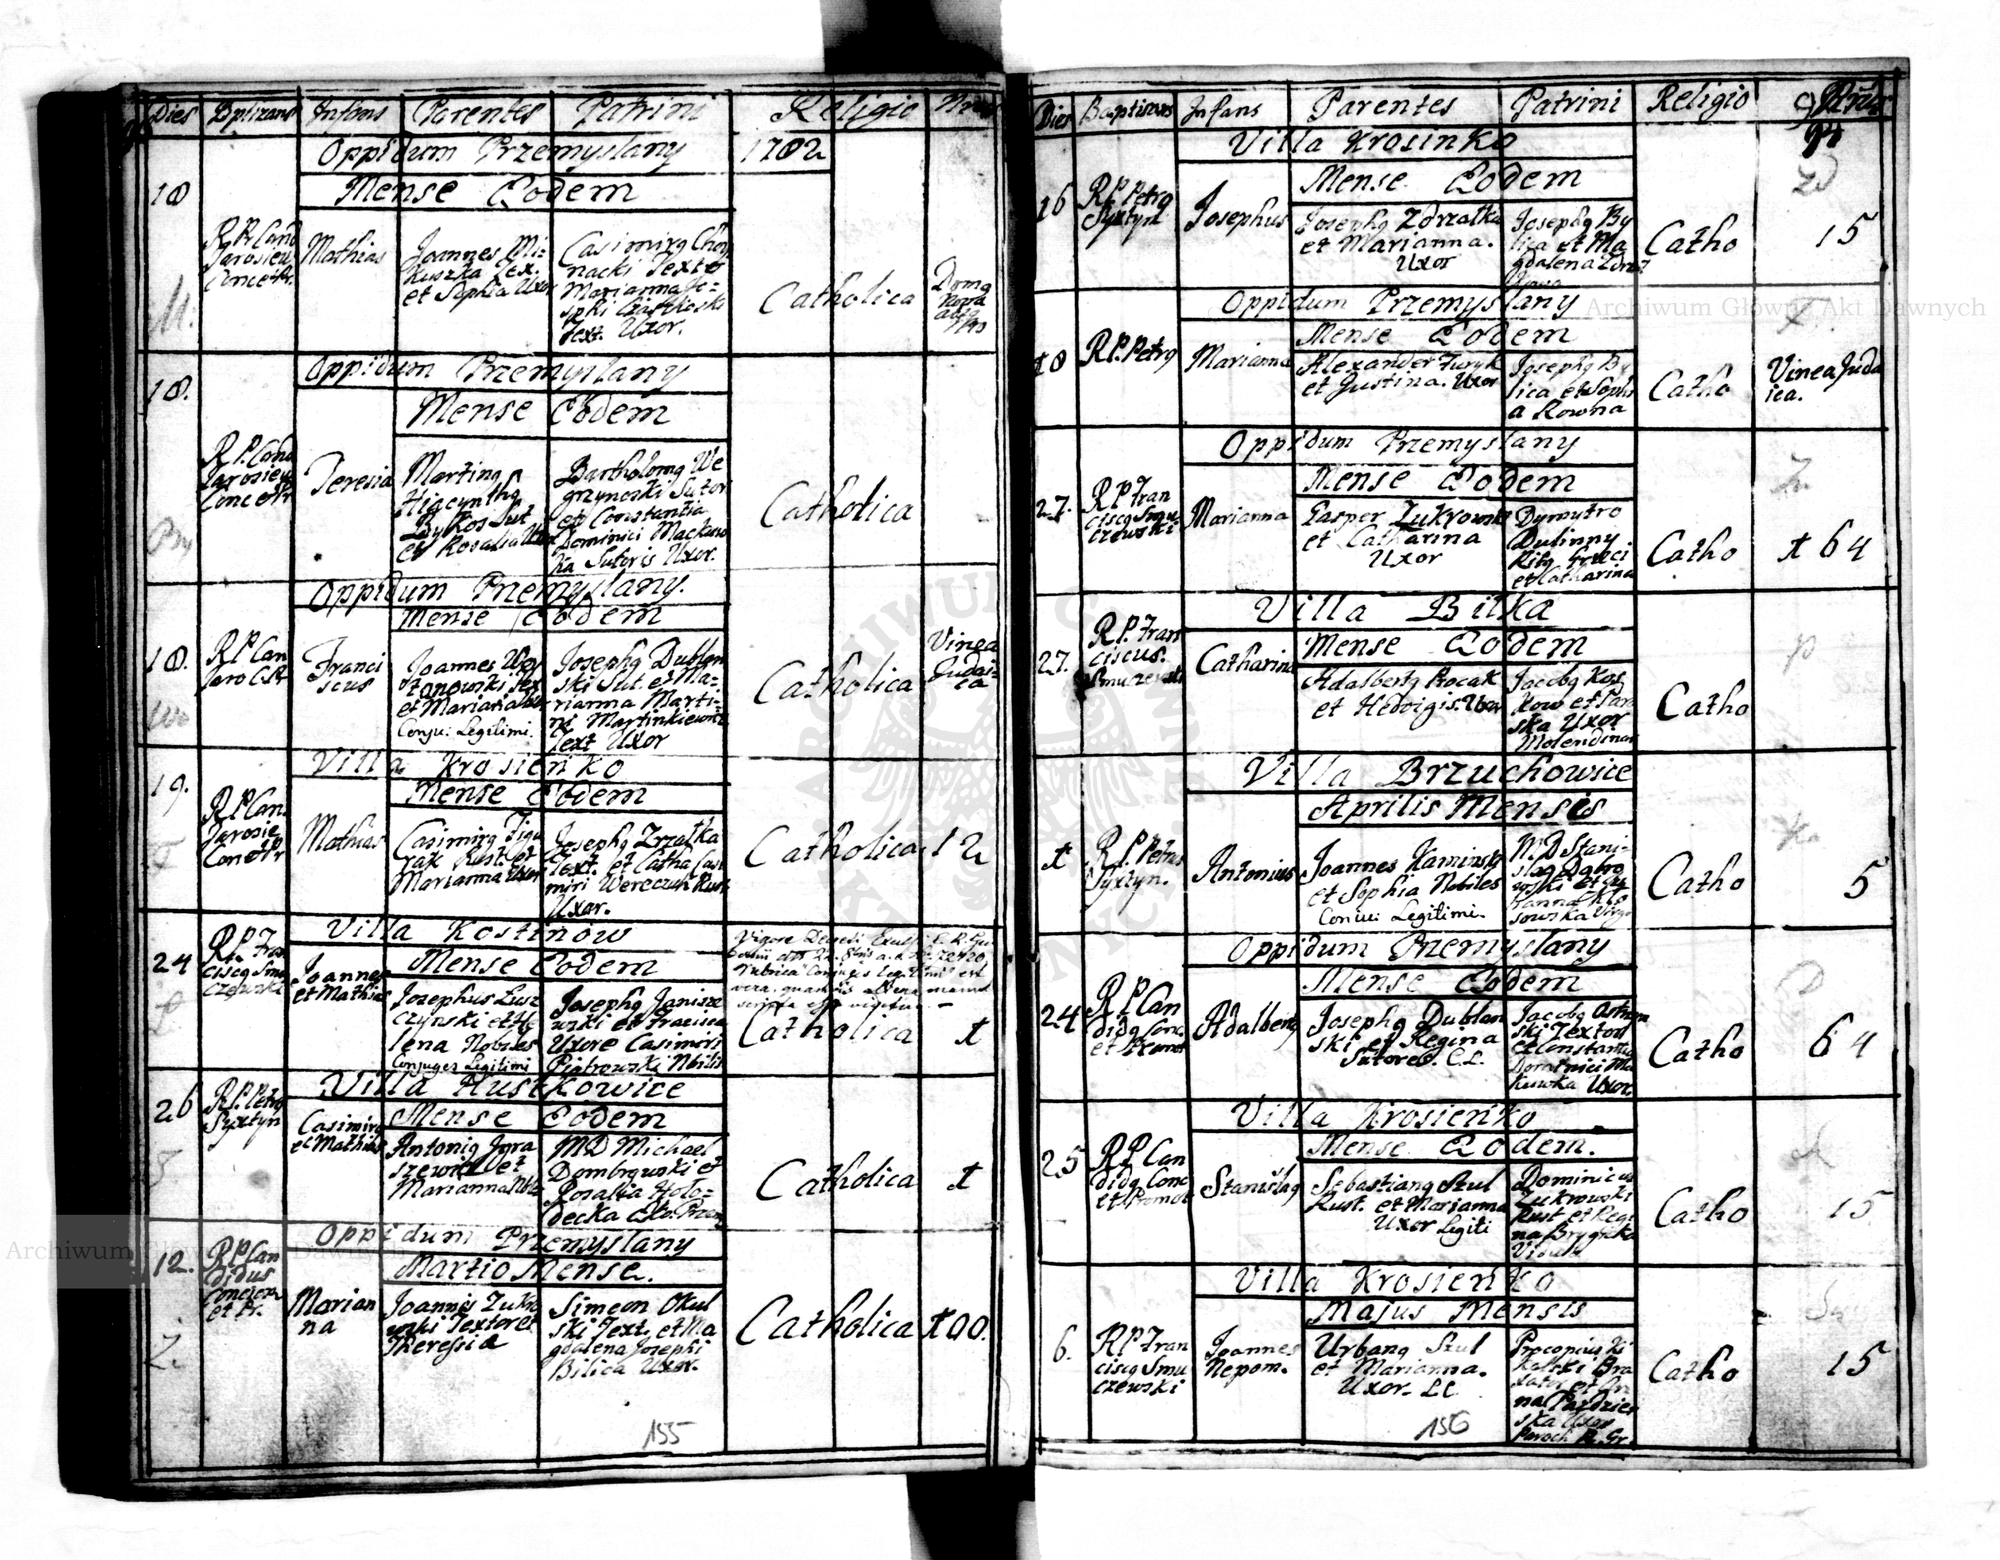 Dies Bptizans Infans Parentes Patrini Religio Nrus
Oppidum Przemyslany 1782
Mense Eodem
18
R P Cand
Jarosiew
Conc et Pr.
Mathias
Joannes Mi-
kuszka Tex.
et Sophia Uxor
Casimirg Choy
nacki Textor
Marianna Jo-
sphi
Text. Uxor.
Catholica
Domg
nova
absq
Nro
Oppidum Przemyslany
18.
Mense Eodem
R P. Cand
Jarosiew
Conc et Pr
Teresia
Marting
Hiacynthg
Bykos Sut
et Rosalia Uxor
Bartholomg We
grzynoski Sutor
et Constantia
Dominici Mackiew
ka Sutoris Uxor.
Catholica
Oppidum Przemyslany.
Mense Eodem
18.
R P Can
Jaro C. Pr
Franci
scus
Joannes
et Mariana
Conju: Legitimi.
Josephg Dublan
ski Sut. et Ma-
rianna Marti-
ni Martinkiewicz
Text Uxor
Catholica
Vinea
Judai-
ca
Villa Krosienko
19.
Mense Eodem
R P Can.
Jarosie
Conc et Pr
Mathias
Casimirg Figu
rak Rust. et
Marianna Uxor
Josephg Zrzatka
Text. et Catha Casi
miri Wereczuk Rust
Uxor.
Catholica
12
Villa Kostinow
24
Mense Eodem
R P. Fran
ciscg Smu
czewski
Joannes
et Mathias
Josephus Lusz
czynski et He
lena Nobiles
Conjuges Legitimi
Josephg Janisze
wski et Francisca
Uxore Casimiri
Piotrowski Nbilis
Vigore Decreti
Rubrica Conjuges Legitimi est
vera, quamvis altena manu
scripta
Catholica
1
Villa Kustkowice
26
R P. Petrg
Syxtyn
Mense Eodem
Casimirg
et Mathias
Antonig Jgna
szewicz et
Marianna Nbles
M D Michael
Dombrowski et
Rosalia Holo-
decka
Catholica
1
Oppidum Przemyslany
12.
Martio Mense.
R P Can
didus
Conciona
et Pr.
Marian
na
Joannis Zukro
wski Textor et
Theresia
Simeon Okul
ski Text. et Ma
gdalena Josephi
Bilica Uxor.
Catholica
100.
155
Dies Baptizans Infans Parentes Patrini Religio
94
Villa Krosinko
Mense Eodem
16
R P. Petrg
Syxtyn
Josephus
Josephg Zdrzatka
et Marianna.
Uxor
Josephg By
lica et Ma
gdalena
Catho
15
Oppidum Przemyslany
Mense Eodem
18
R P. Petrg
Marianna
Alexander Furyk
et Justina. Uxor
Josephg By
lica et Sophi
a Rowna
Catho
Vinea Juda
ica.
Oppidum Przemyslany
Mense Eodem
27.
R P Fran
ciscg Smu
czewski
Marianna
Gasper Zukrowski
et Catharina
Uxor
Dymytro
Dulinny
Ritg Greci
et Catharina
Catho
164
Villa Bilka
Mense Eodem
27.
R P. Fran
ciscus.
Smuczewski
Catharina
Adalbertg Procak
et Hedvigis. Uxor
Jacobg Kos
kow et Para
ska Uxor
Molendinar
Catho
Villa Brzuchowice
Aprilis Mensis
1
R P. Petrus
Syxtyn.
Antonius
Joannes Kaminsky
et Sophia Nobiles
Coniu: Legitimi.
M. D Stani-
slag Dabro
wski et
ranna
sowska Virgo
Catho
5
Oppidum Przemyslany
Mense Eodem
24
R P Can
didg Conc
et Promot
Adalbertg
Josephg Dublan
ski et Regina
Sutores. C. L.
Jacobg
ski Textor
et Constantia
Dominici Ma
kuwka Uxor.
Catho
64
Villa Krosienko
Mense Eodem.
25
R P Can
didg Conc
et Promot
Stanislag
Sebastiang Stul
Rust. et Marianna
Uxor Legiti
Dominicus
Zukrowski
Rust et Regi
na Brygitka
Vidua
Catho
15
Villa Krosienko
Majus Mensis
6.
R P Fran
ciscg Smu
czewski
Joannes
Nepom.
Urbang Stul
et Marianna.
Uxor. LC
Procopius Ki
kalski Bra
xator et
na
ska Uxor
Paroch R. Gr.
Catho
15
156
Archiwum Główne Akt Dawnych